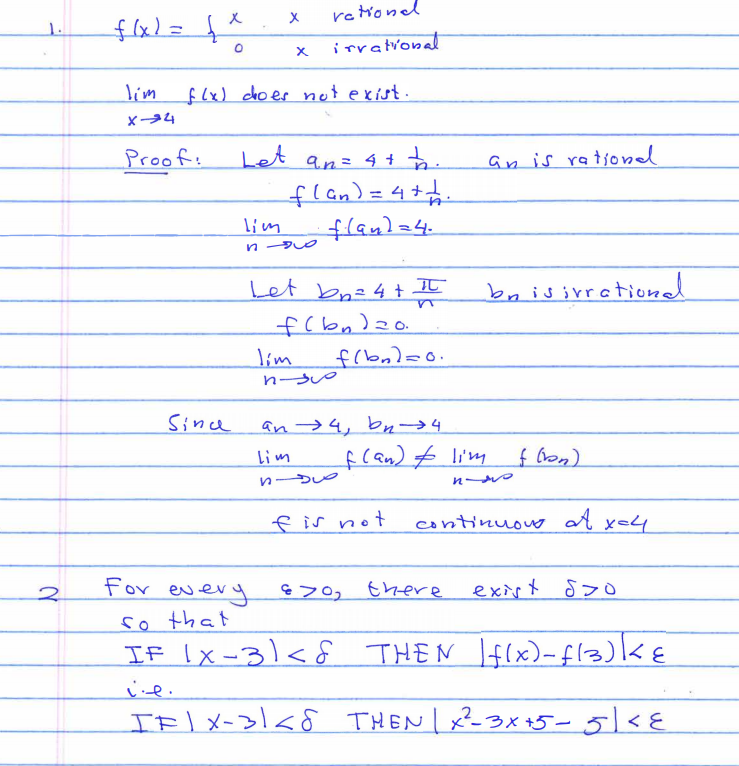 1. f(x) = { x x rational
0 x irrational
lim f(x) does not exist.
x→4
Proof: Let an = 4 + 1/n. an is rational
f(an) = 4 + 1/n.
lim f(an) = 4.
n→∞
Let bn = 4 + π/n bn is irrational
f(bn) = 0.
lim f(bn) = 0.
n→∞
Since an → 4, bn → 4
lim f(an) ≠ lim f(bn)
n→∞ n→∞
f is not continuous at x=4
2 For every ε>0, there exist δ>0
so that
IF |x-3|<δ THEN |f(x)-f(3)|<ε
i.e.
IF |x-3|<δ THEN |x²-3x+5-5|<ε